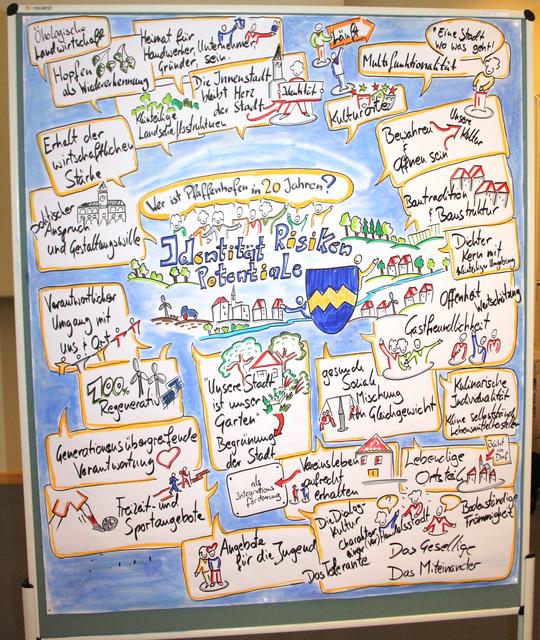 neuland
Ökologische
Landwirtschaft
Hopfen
als Wiedererkennung
Heimat für
Handwerker, Unternehmer
Gründer, sein.
Kleinteilige
Landschaftsstrukturen
Die Innenstadt
bleibt Herz
der Stadt
Identität
läuft
"Eine Stadt
wo was geht!"
Multifunktionalität
Kulturorte
Bewahren
Offen sein
Unsere
Kultur
Erhalt der
wirtschaftlichen
Stärke
politischer
Anspruch
und Gestaltungswille
Bautradition
& Baustruktur
Wer ist Pfaffenhofen in 20 Jahren?
Identität Risiken
Potentiale
Dichter
Kern mit
Verantwortlicher
Umgang mit
uns & Ort
Offenheit Wertschätzung
Gastfreundlichkeit
100%
Regenerativ
"Unsere Stadt
ist unser
Garten"
Begrünung
der Stadt
gesunde
Soziale
Mischung
Am Gleichgewicht
Kulinarische
Individualität
Kleine selbstständ.
Lebensmittelhersteller
Generationsübergreifende
Verantwortung
Freizeit- und
Sportangebote
als
Integrations
förderung
Vereinsleben
aufrecht
erhalten
Lebendige
Ortsteile
Angebote
für die Jugend
Die Dialog-
Kultur
Charakter
einer
Das Tolerante
Bodenständige
Frömmigkeit
Das Gesellige
Das Miteinander